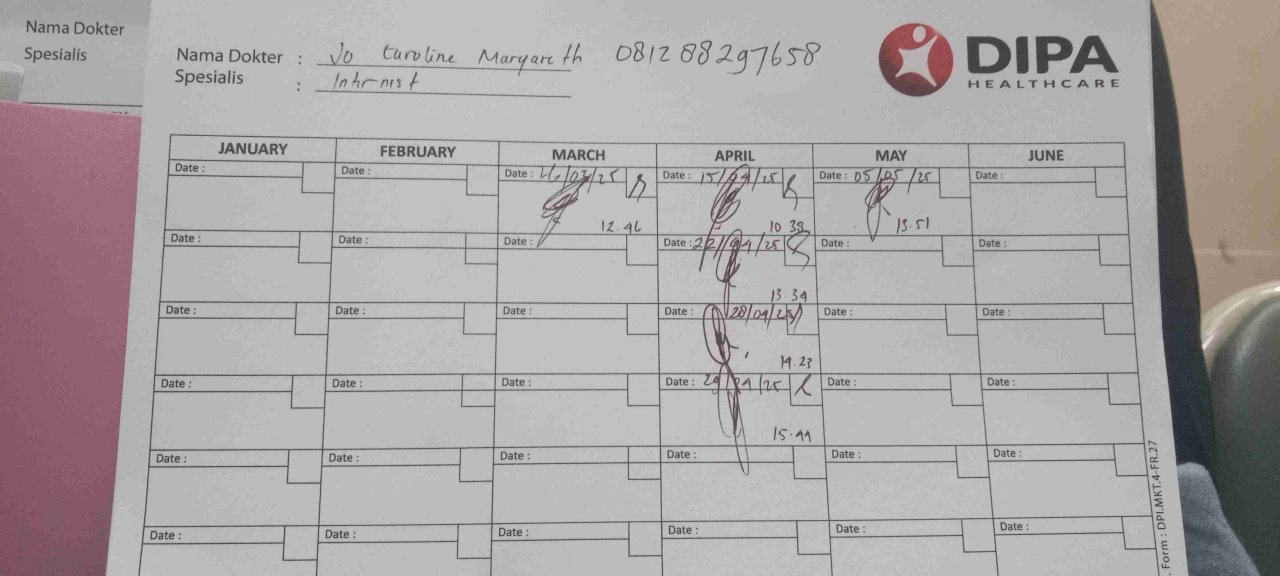 Nama Dokter
Spesialis
Nama Dokter : Jo Caroline Margareth 081288297658
Spesialis : Intrnist
DIPA
HEALTHCARE
JANUARY FEBRUARY MARCH APRIL MAY JUNE
Date : Date : Date : /03/25 Date : 15/04/25 Date : 05/05/25 Date :
12.46 10 38 13.51
Date : Date : Date : Date : 22/04/25 Date : Date :
13.34
Date : Date : Date : Date : 28/04/25 Date : Date :
14.23
Date : Date : Date : Date : 29/04/25 Date : Date :
15.44
Date : Date : Date : Date : Date : Date :
Date : Date : Date : Date : Date : Date :
. Form : DPI.MKT.4-FR.27